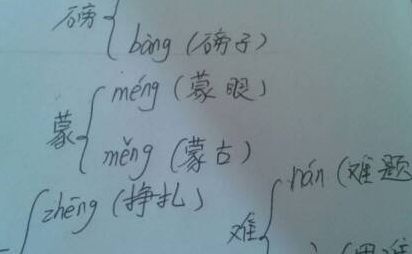 磅
bàng (磅子)
蒙
méng (蒙眼)
měng (蒙古)
zhēng (挣扎)
难
nán (难题